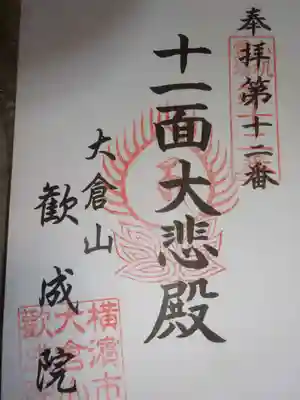 奉拝第十二番
十一面大悲殿
大倉山
歓成院
横濱市
大倉山
歓